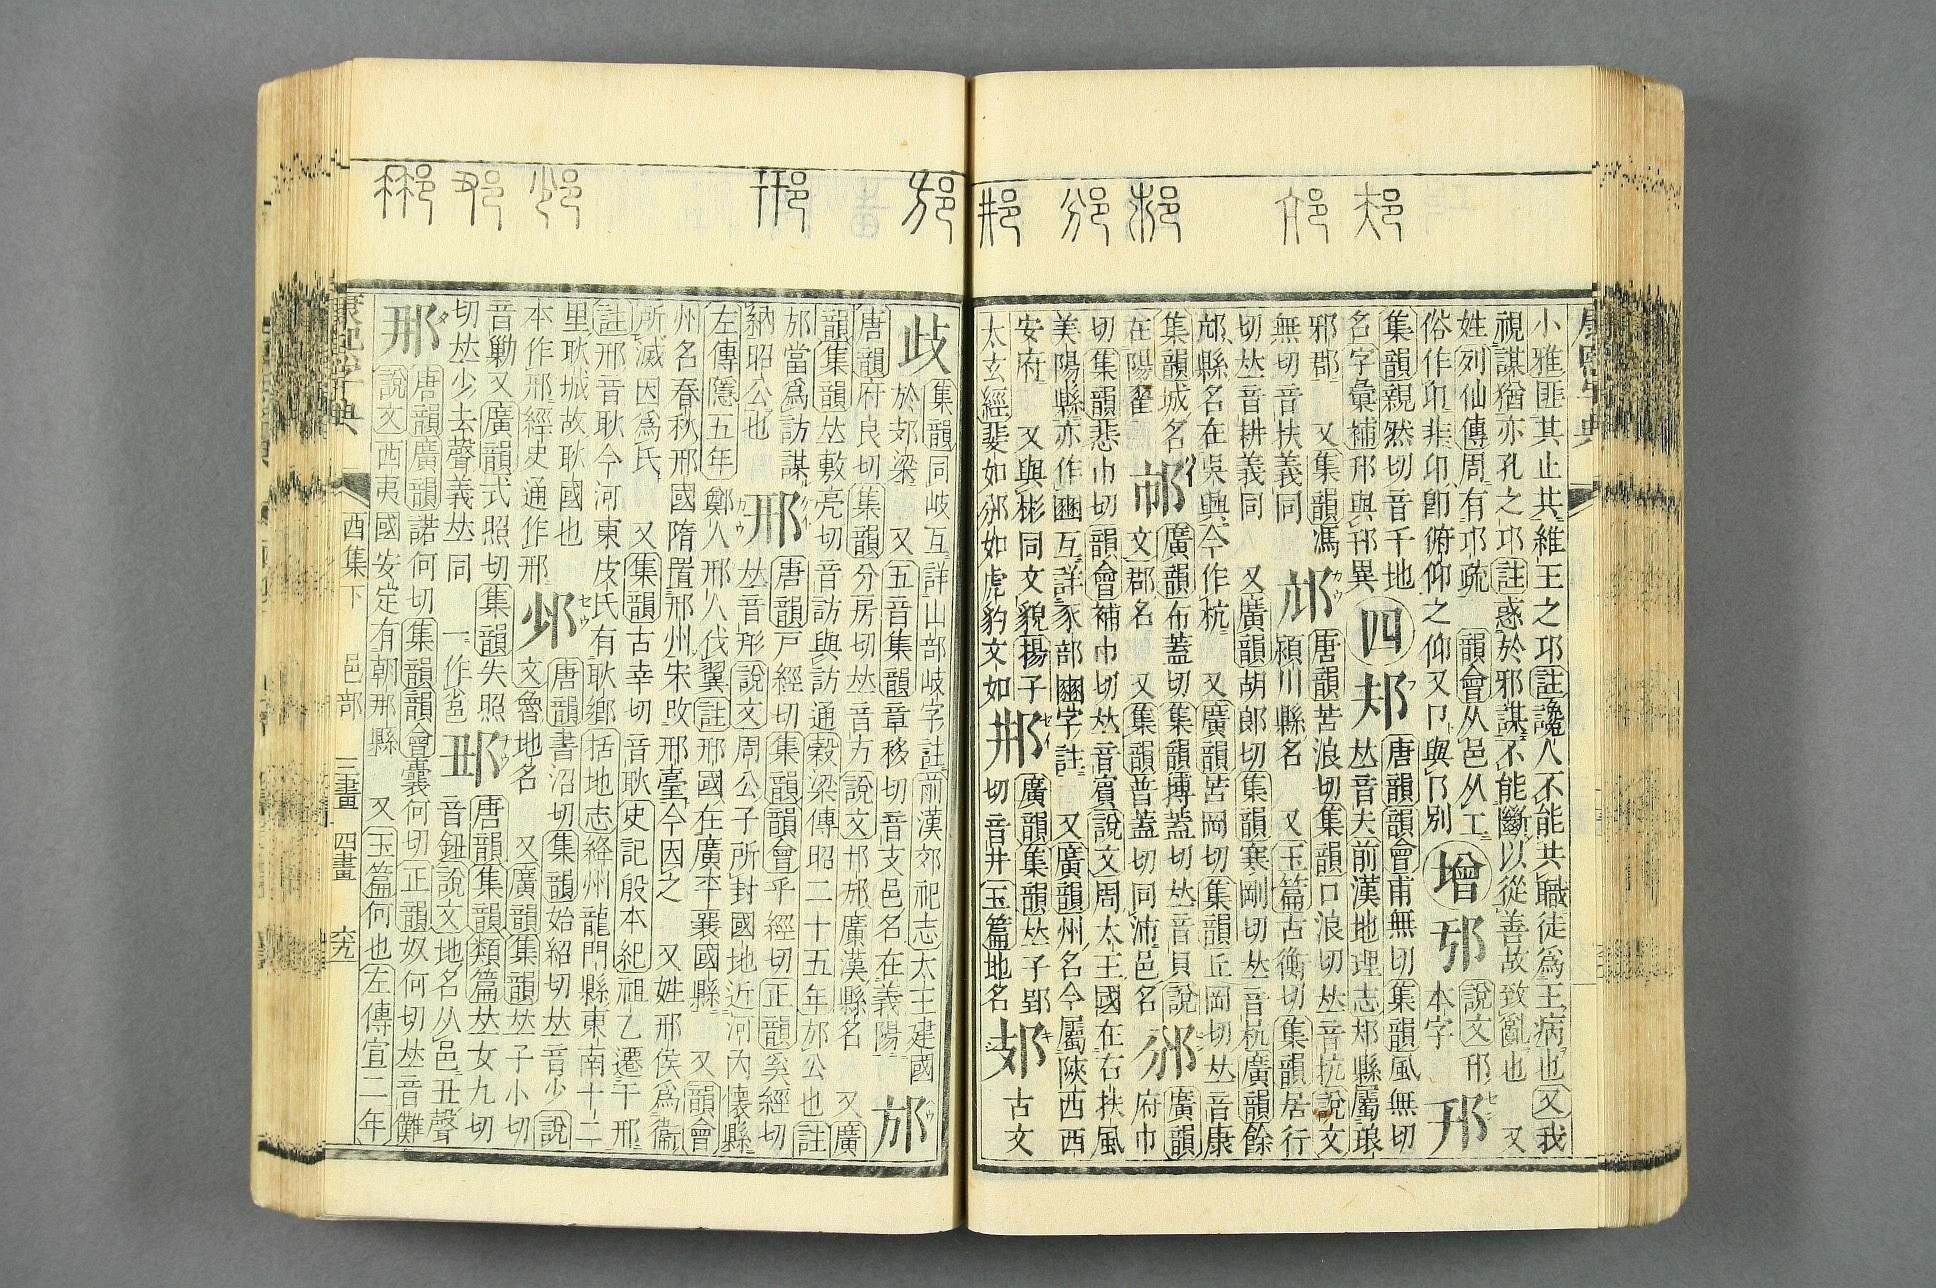 康熙字典
小雅匪其止共維王之邛註讒人不能共職徒爲王病也又我
視謀猶亦孔之邛註惑於邪謀不能斷以從善故致亂也 又
姓列仙傳周有邛疏 韻會从邑从工
俗作卬非卬卽俯仰之仰又卩與㔾別
增
說文邘
本字
邘
集韻親然切音千地
名字彙補邘與邗異
四
邞
唐韻韻會甫無切集韻風無切
𠀤音夫前漢地理志邞縣屬琅
邪郡 又集韻馮
無切音扶義同
邟
唐韻苦浪切集韻口浪切𠀤音抗說文
潁川縣名 又玉篇古衡切集韻居行
切𠀤音耕義同 又廣韻胡郎切集韻寒剛切𠀤音杭廣韻餘
邟縣名在吳興今作杭 又廣韻苦岡切集韻丘岡切𠀤音康
集韻城名
在陽翟
廣韻布蓋切集韻博蓋切𠀤音貝說
文郡名 又集韻普蓋切同沛邑名
邠
廣韻
府巾
切集韻悲巾切韻會補巾切𠀤音賓說文周太王國在右扶風
美陽縣亦作豳互詳豕部豳字註 又廣韻州名今屬陝西西
安府 又與彬同文貌揚子
太玄經斐如邠如虎豹文如
廣韻集韻𠀤子郢
切音井玉篇地名
古文
集韻同岐互詳山部岐字註前漢郊祀志太王建國
於𨙸梁 又五音集韻章移切音支邑名在義陽
邡
唐韻府良切集韻分房切𠀤音方說文邡廣漢縣名 又廣
韻集韻𠀤敷亮切音訪與訪通穀梁傳昭二十五年邡公也註
邡當爲訪謀
納昭公也
邢
唐韻戸經切集韻韻會乎經切正韻奚經切
𠀤音形說文周公子所封國地近河內懷縣
左傳隱五年鄭人邢人伐翼註邢國在廣平襄國縣 又韻會
州名春秋邢國隋置邢州朱攺邢臺今因之 又姓邢侯爲衞
所滅因爲氏 又集韻古幸切音耿史記殷本紀祖乙遷于邢
註邢音耿今河東皮氏有耿鄕括地志絳州龍門縣東南十二
里耿城故耿國也
本作邢經史通作邢
唐韻書沼切集韻始紹切𠀤音少說
文魯地名 又廣韻集韻𠀤子小切
音勦又廣韻式照切集韻失照
切𠀤少去聲義𠀤同 一作
唐韻集韻類篇𠀤女九切
音鈕說文地名从邑丑聲
那
唐韻廣韻諾何切集韻韻會囊何切正韻奴何切𠀤音儺
說文西夷國安定有朝那縣 又玉篇何也左傳宣二年
康熙字典
酉集下 邑部 三畫 四畫 六九